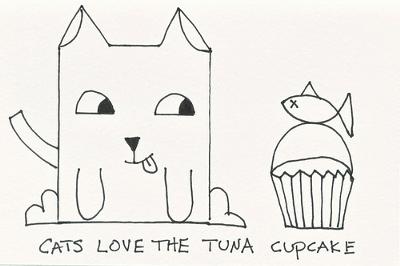 CATS LOVE THE TUNA CUPCAKE